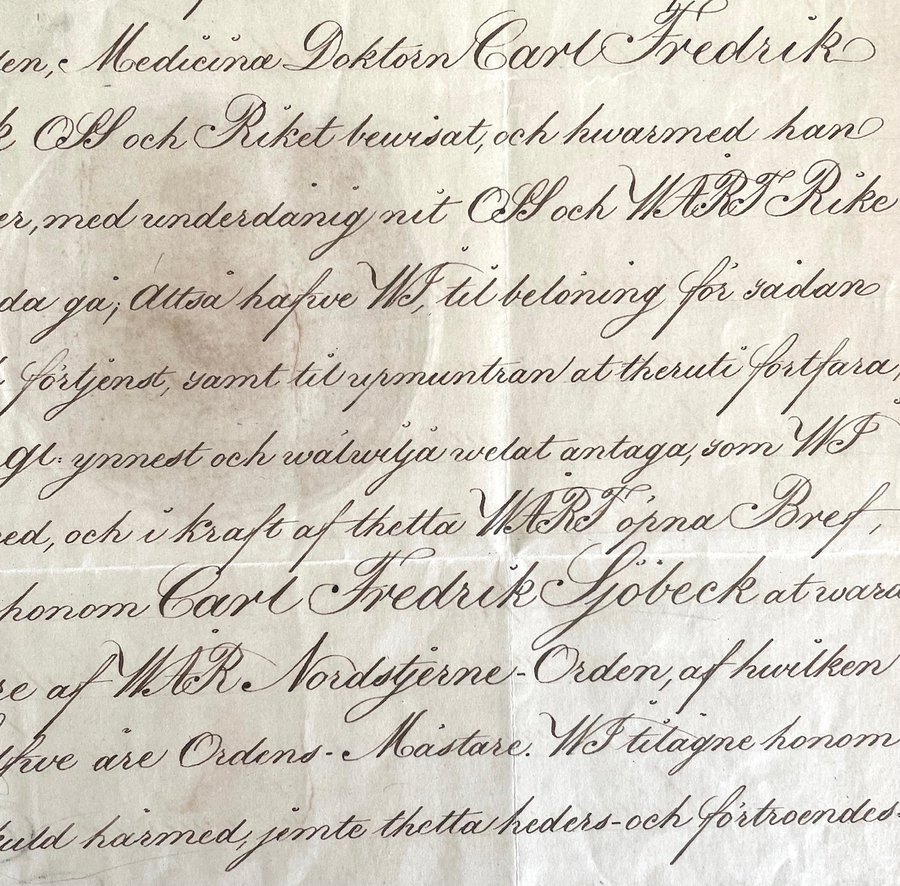 en, Medicinæ Doktorn Carl Fredrik
k OSS och Riket bewisat, och hwarmed han
er, med underdånig nit OSS och WÅRT Rike
da gå; Altså hafwe WI, til belöning för sådan
förtjenst, samt til upmuntran at theruti fortfara,
gl: ynnest och wälwilja welat antaga, som WI
ed, och i kraft af thetta WÅRT öpna Bref,
honom Carl Fredrik Sjöbeck at wara
re af WÅR Nordstjerne-Orden, af hwilken
fwe äre Ordens-Mästare. WI tilägne honom
kuld härmed, jemte thetta heders- och förtroendes-